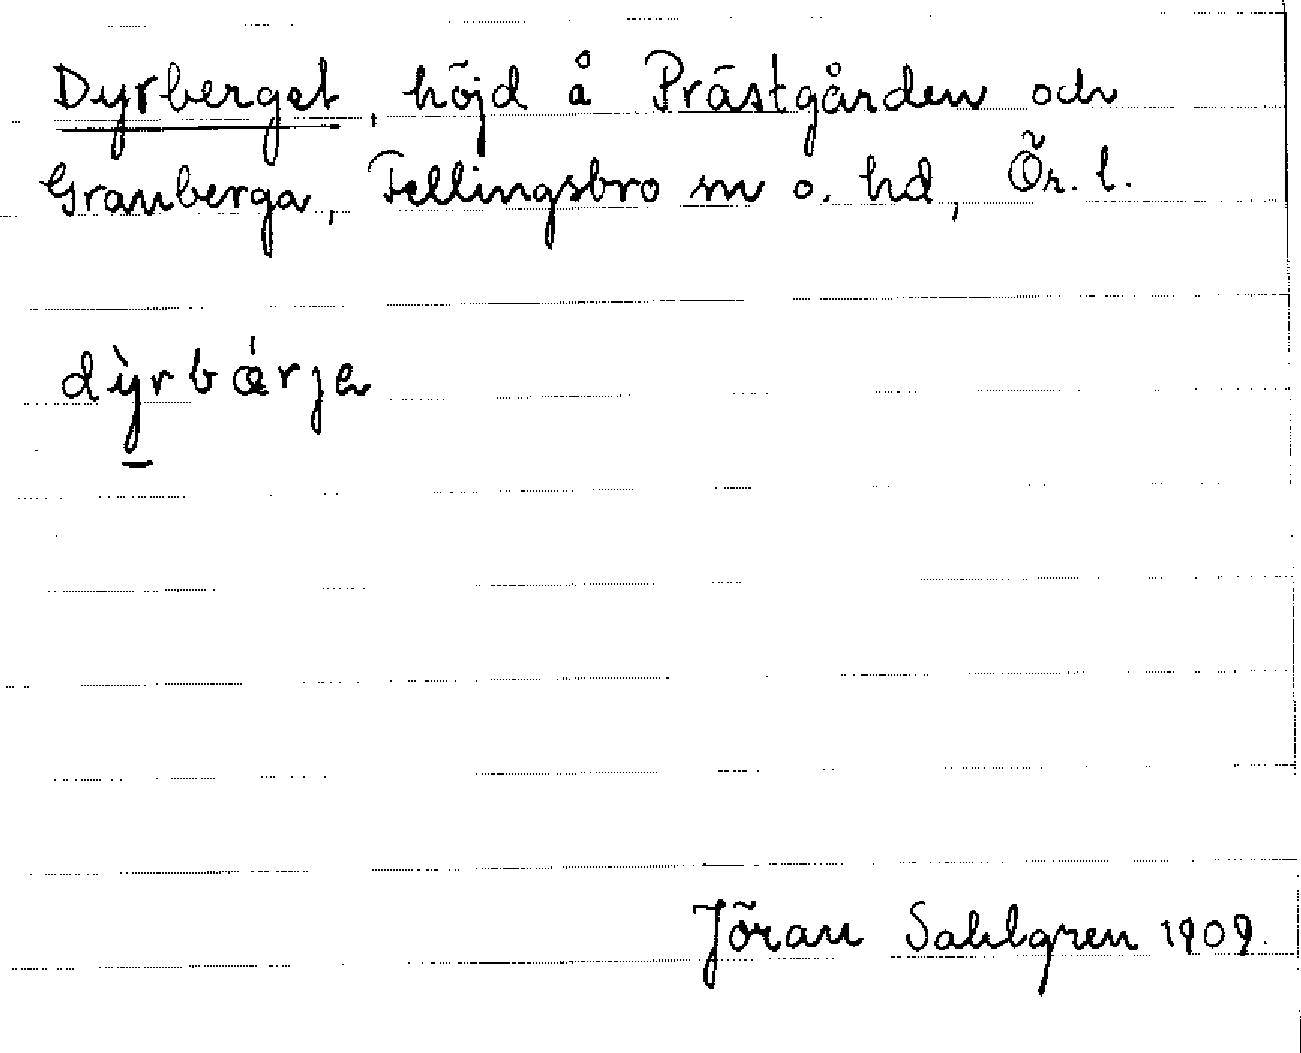 Dyrberget, höjd å Prästgården och
Granberga, Fellingsbro sn o. hd, Ör. l.
dỳrbǽrje
Jöran Sahlgren 1909.